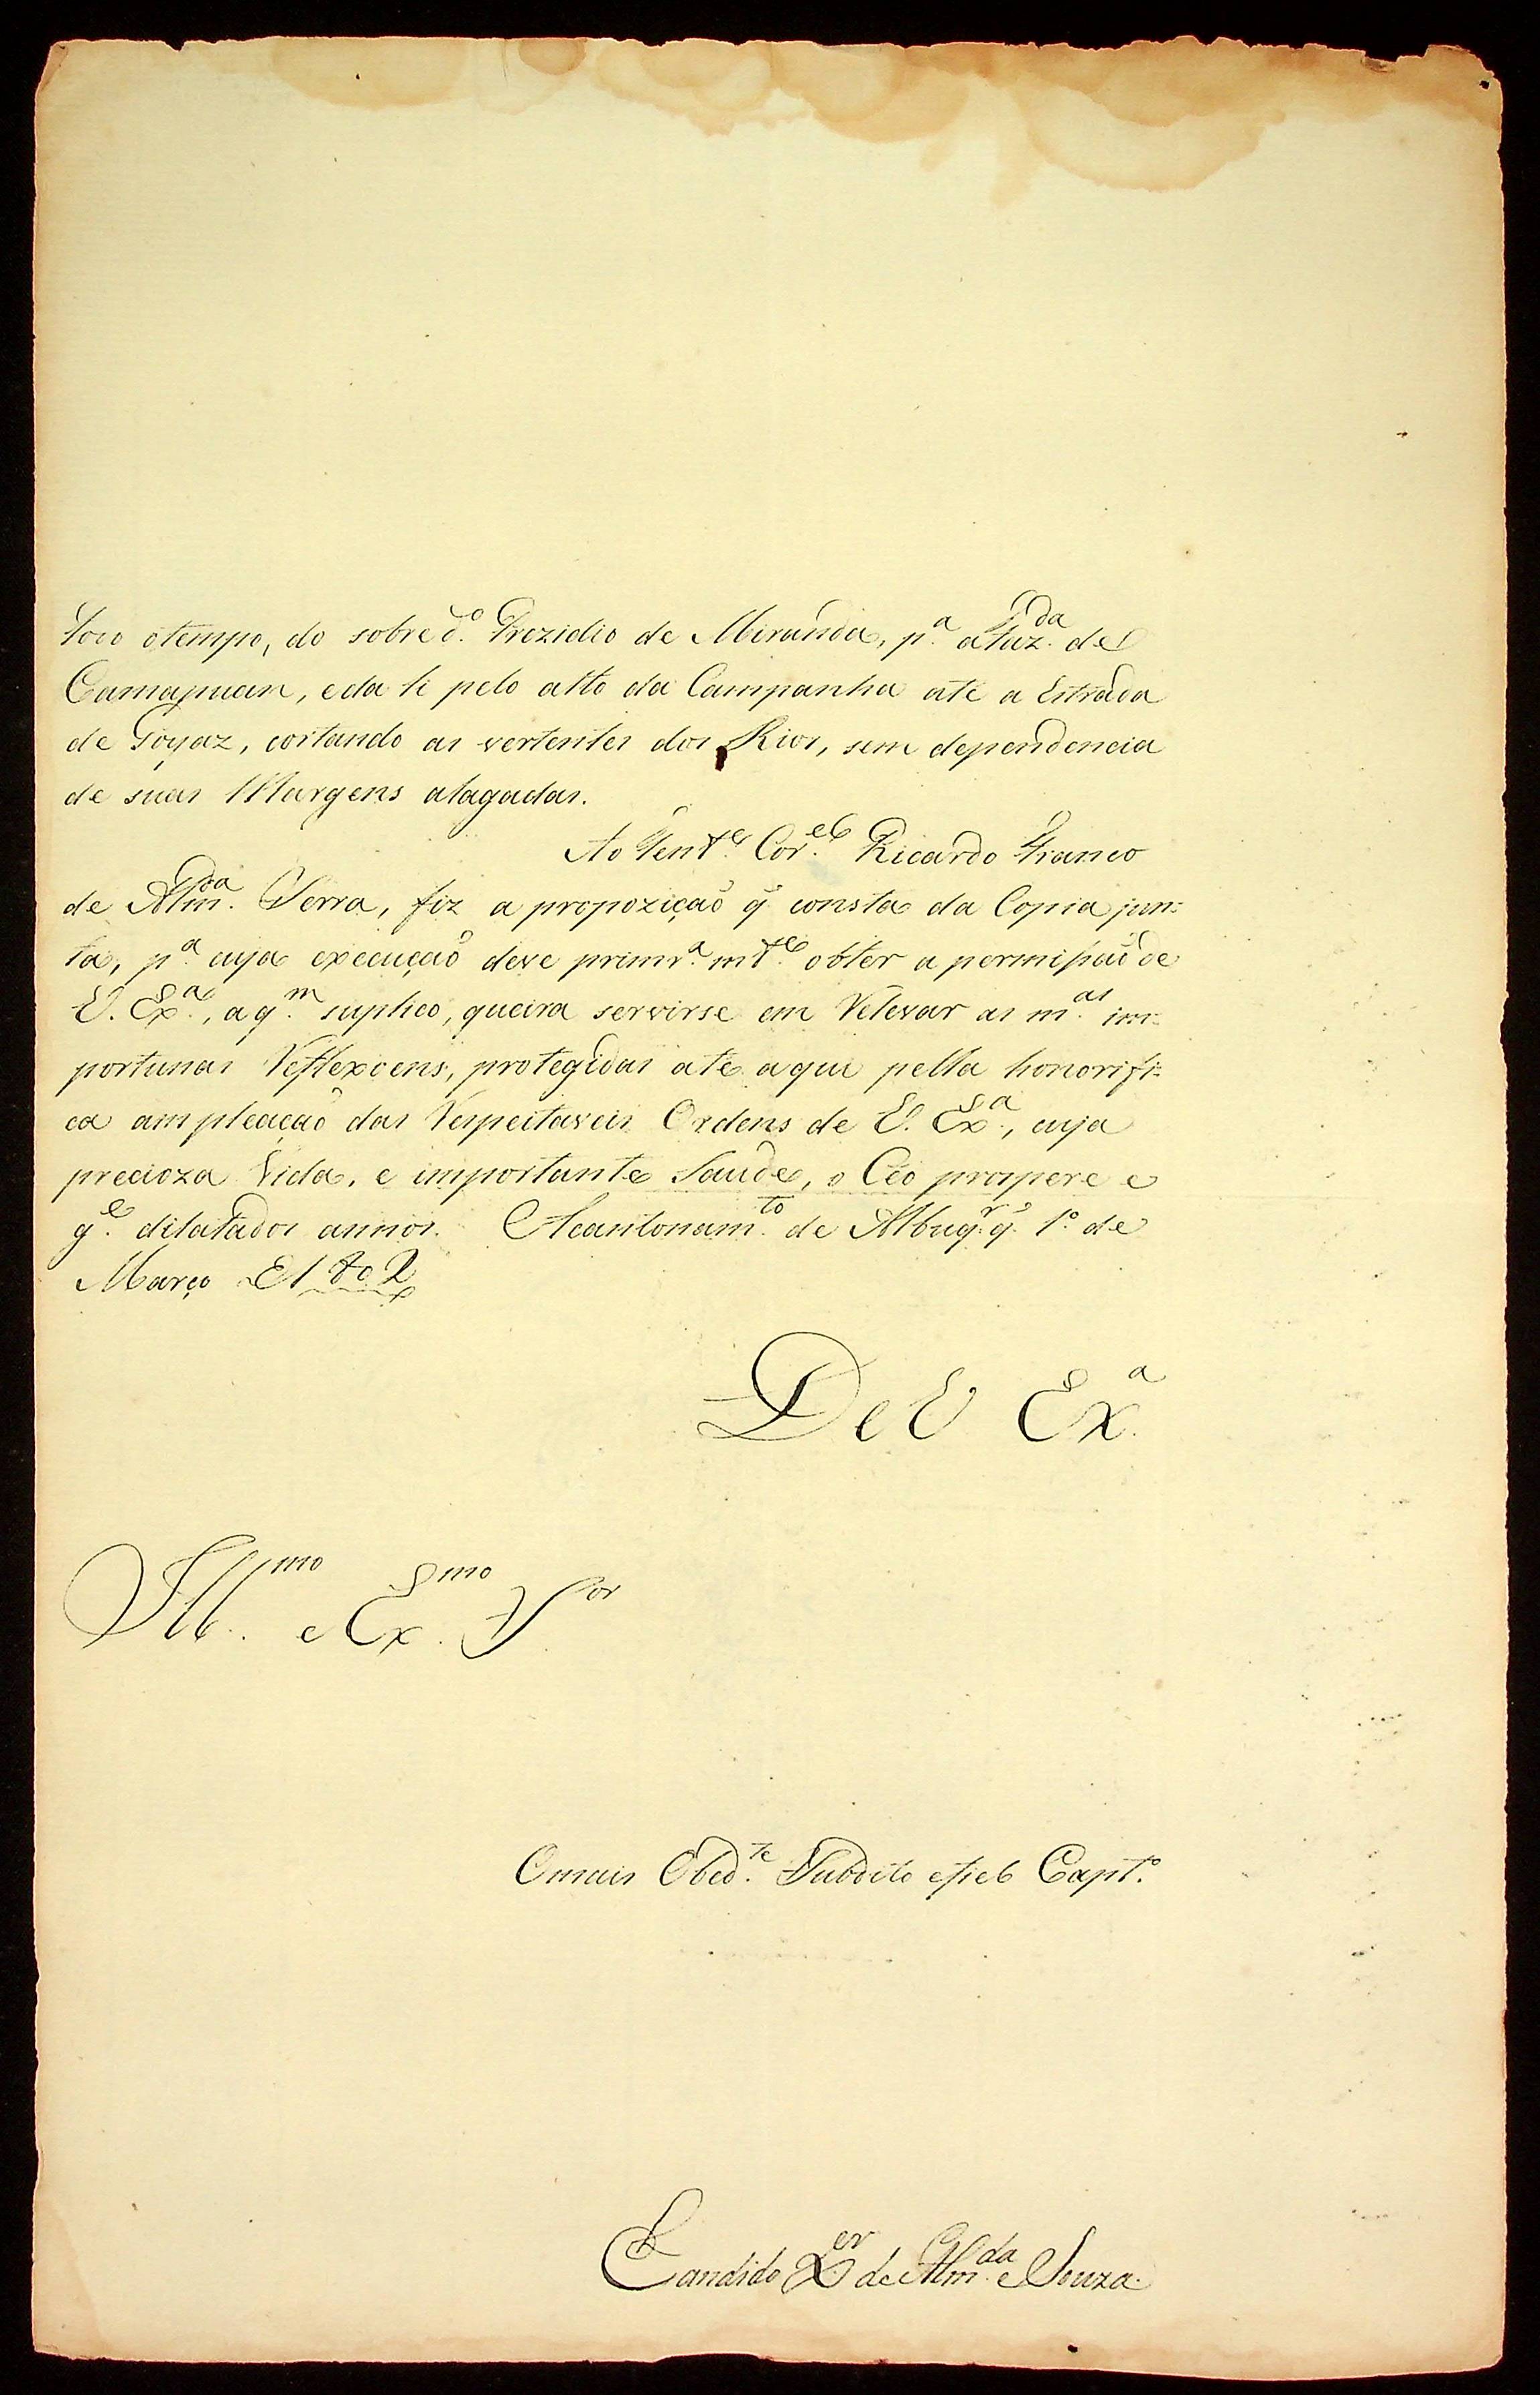 todo otempo, do sobred.º Prezidio de Miranda, p.ª afaz.da de
Camapuan, eda li pelo alto da Campanha até a Estrada
de Goyaz, cortando as vertentes dos Rios, sem dependencia
de suas Margens alagadas.
Ao Tent.e Cor.el Ricardo Franco
de Alm.da Serra, fiz a propozição q̃ consta da Copia jun=
ta, p.ª cuja execução deve primr.ª mt.e obter a permissão de
V. Ex.ª, a q.m suplico, queira servirse em Relevar as m.as im=
portunas Reflexoens, protegidas até aqui pella honorifi=
ca ampleação das Respeitaveis Ordens de V. Ex.ª, cuja
precioza Vida, e importante Saude, o Céo prospere e
g.e dilatados annos. Acantonam.to de Albuq.r q.e 1.º de
Março d1802
De V Ex.ª
Ill.mo e Ex.mo S.or
Omais Obed.te Subdito efiel Capt.º
Candido X.er de Alm.da e Souza.